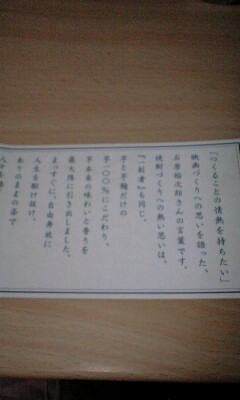 『つくることの情熱を持ちたい』
映画づくりへの思いを語った、
石原裕次郎さんの言葉です。
焼酎づくりへの熱い思いは、
『一刻者』も同じ。
芋と芋麹だけの
芋一〇〇%にこだわり、
芋本来の味わいと香りを
最大限に引き出しました。
まっすぐに、自由奔放に
人生を駆け抜け、
ありのままの姿で